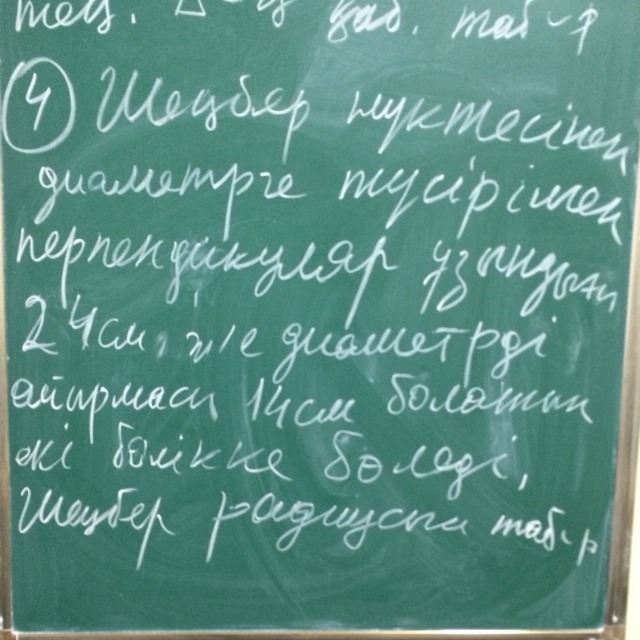 тең. қаб. таб-р
④ Шеңбер нүктесінен
диаметрге түсірілген
перпендикуляр ұзындығы
24см, ж/е диаметрді
айырмасы 14см болатын
екі бөлікке бөледі,
Шеңбер радиусын таб-р